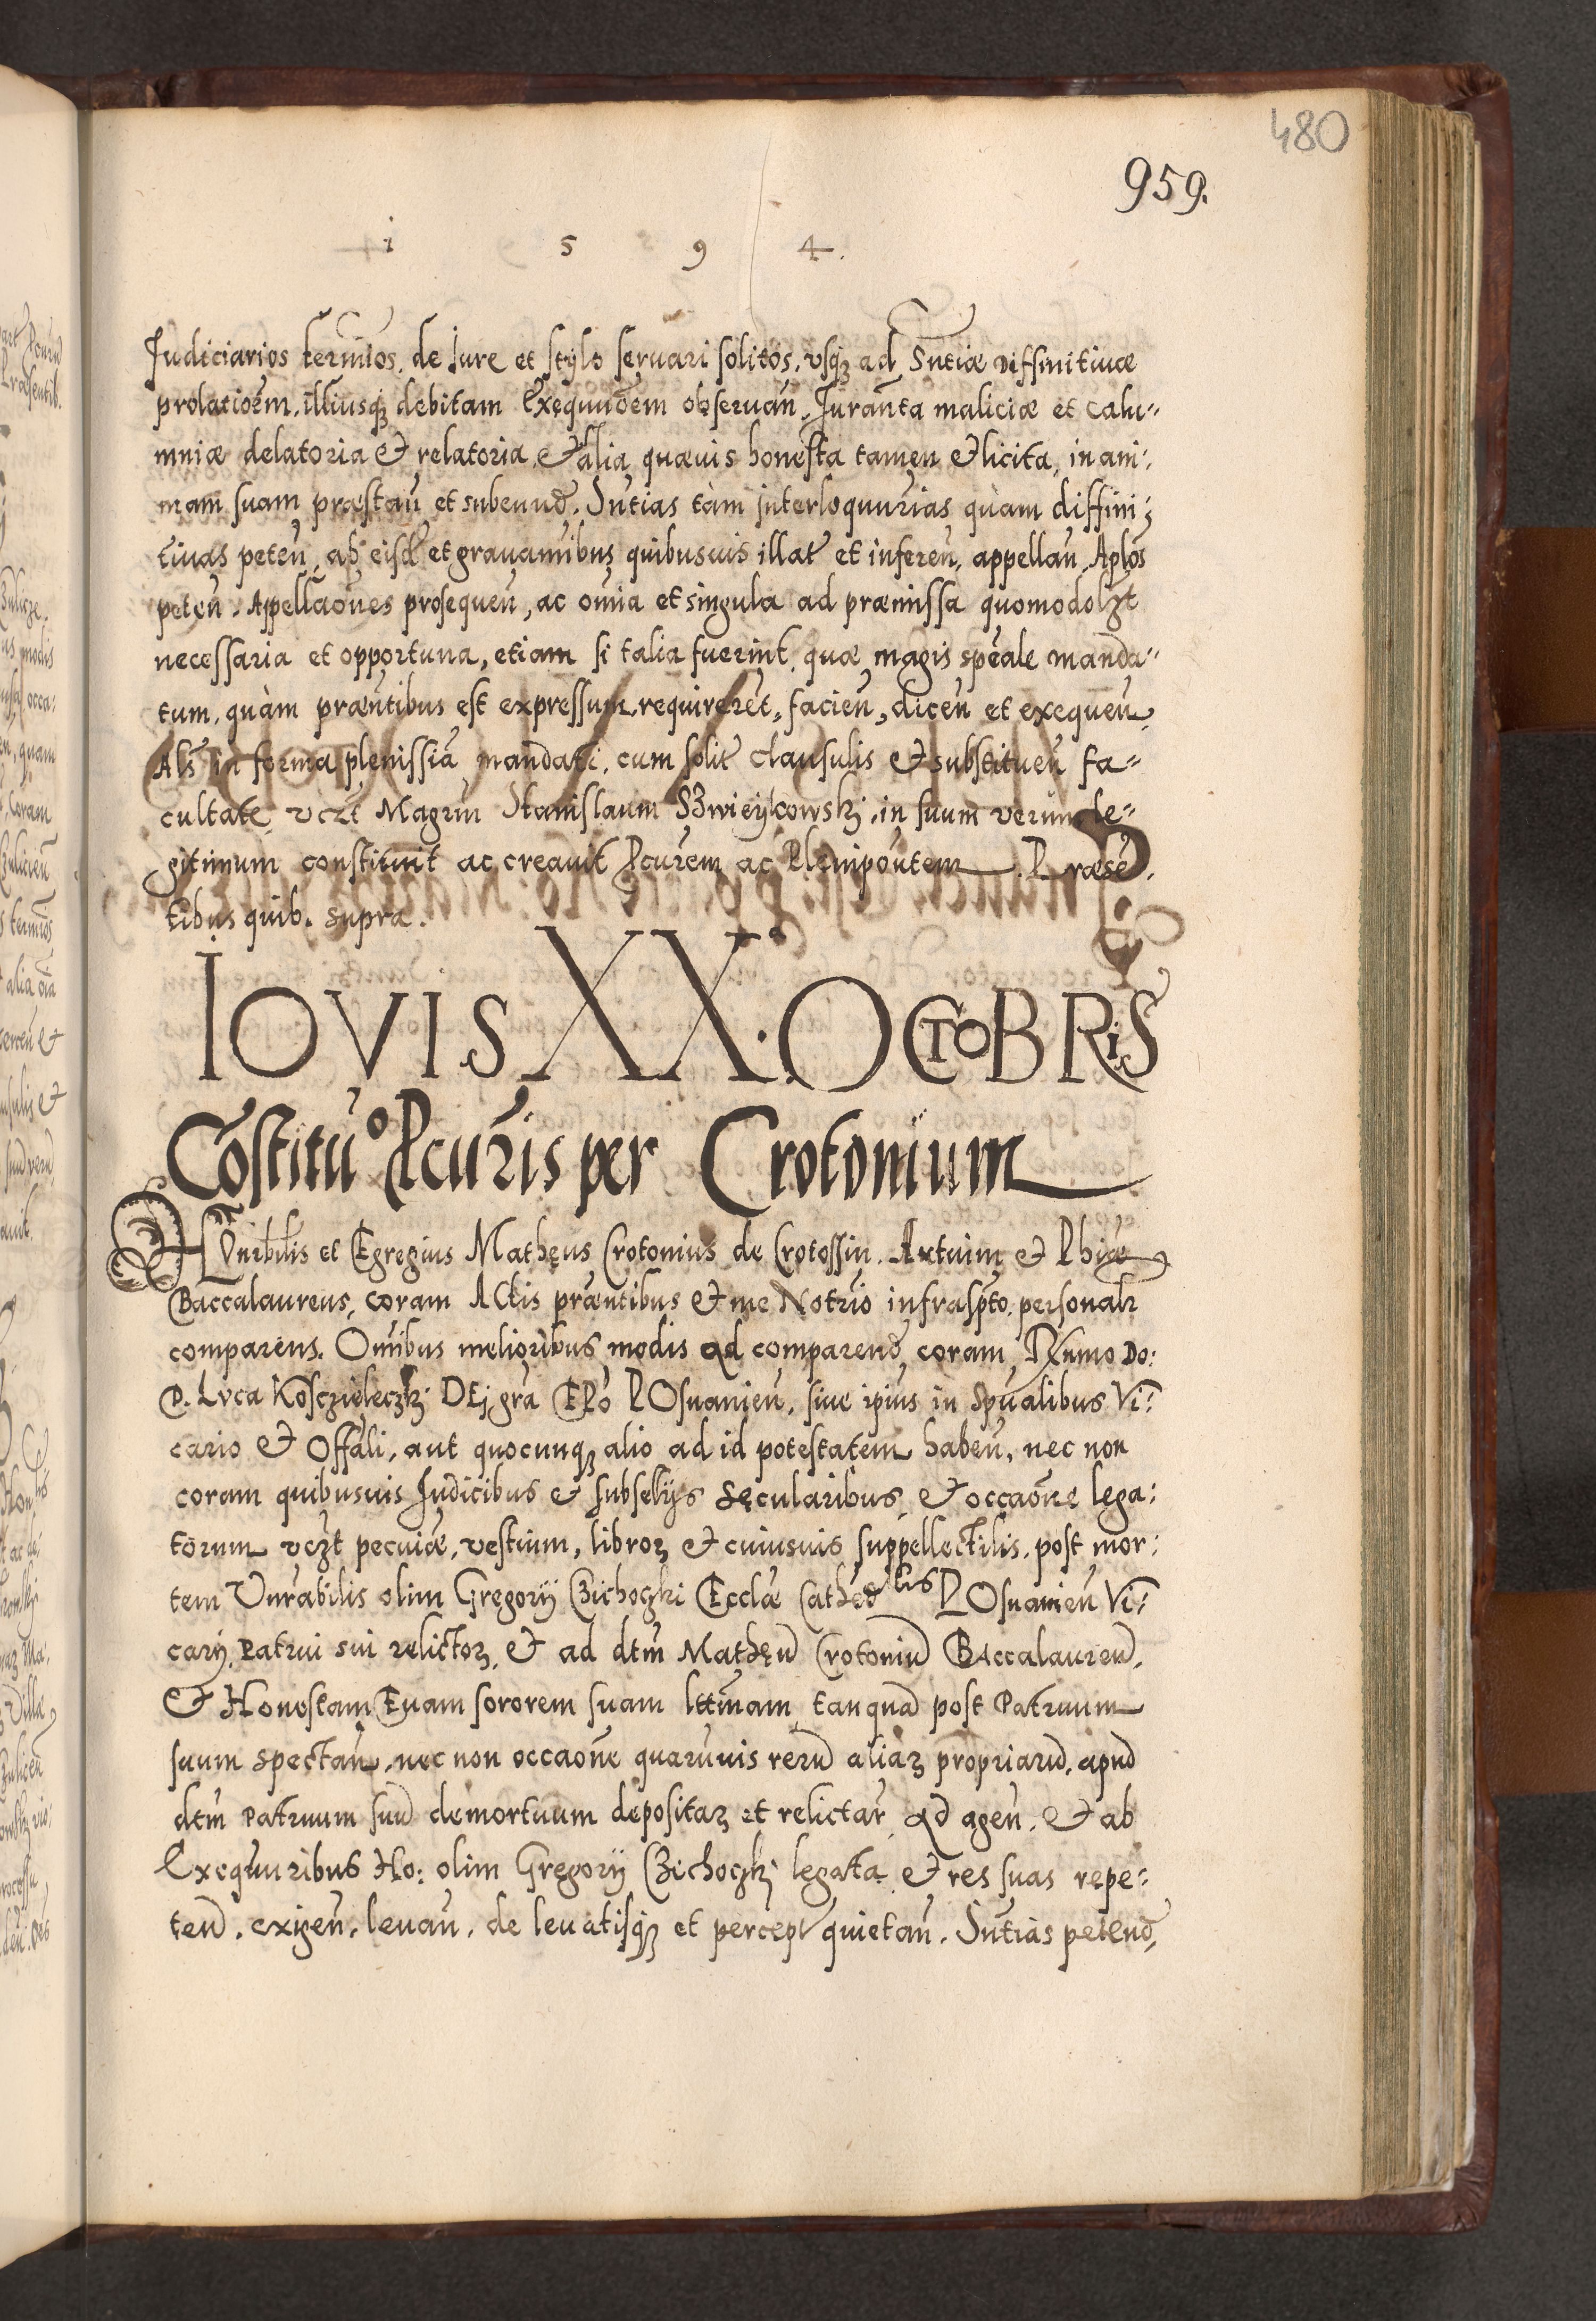 480
959.
1 5 9 4.
Judiciarios termīos, de Jure et stylo seruari solitos, vsq̨ ad Sntiæ Diffinitiuæ
prolatioēm, illiusq̨ debitam Exequu̅oem obseruan̄, Juran̄ta maliciæ et calu„
mniæ delatoria & relatoria, & alia quæuis honesta tamen & licita, in ani:
mam suam præstan̄ et subeund̄. Sn̄tias tàm interloquu̅rias quàm diffini:
tiuas peten̄, ab eisd̄ et grauamibus quibusuis illat̄ et inferen̄, appellan̄, Aplōs
peten̄. Appellaōnes prosequen̄, ac om̄ia et singula ad præmissa quomodolʒt
necessaria et opportuna, etiam si talia fuerint, quæ magis spēale manda„
tum, quàm præn̄tibus est expressum, requirerēt, facien̄, dicen̄ et exequen̄.
Alš in forma plenissīa mandati, cum solit̄ clausulis & substituen̄ fa„
cultate vcʒt Magrm̄ Stanislaum Szwieykowskj, in suum verum le„
gitimum constituit ac creauit Pcurēm ac Plenipōutem. Præsē,
tibus quib. supra.
IOVIS XX. OCTOBRIS
Cōstitu̅o Pcurīs per Crotonium
HOnrbīlis et Egregius Mathęus Crotonius de Crotossin. Artuim & Phiæ
Baccalaureus, coram Actis præn̄tibus & me Not̄rio infraspt̄o personalr
comparens. Om̄ibus melioribus modis ad comparend̄ coram Rx̄mo Do:
D. Lvca Kosczieleczkj DEj gr̄a EPō POsnanien̄, siue ip̄ius in Spu̅alibus Vi:
cario & Offāli, aut quocunq̨ alio ad id potestatem haben̄, nec non
coram quibusuis Judicibus & subselijs sęcularibus, & occaōne lega:
torum vcʒt pecuīæ, vestium, libroꝝ & cuiusuis suppellectilis, post mor:
tem Vnrābilis olim Gregorij Czichoczki Ecclæ Cathēdlis POsnanien̄ Vi:
carij, Patrui sui relictoꝝ, & ad dtm̄ Mathęū Crotoniū Baccalaureū,
& Honestam Euam sororem suam lttīmam tanquā post Patruum
suum spectan̄, nec non occaōne quaruuis rerū aliaꝝ propriarū, apud
dtm̄ Patruum suū demortuum depositaꝝ et relictar̄ ad agen̄. & ab
Exequu̅ribus Ho: olim Gregorij Czichoczkj legata & res suas repe:
ten̄d. exigen̄. leuan̄. de leuatisq̨ et percept̄ quietan̄. Sn̄tias petend̄,